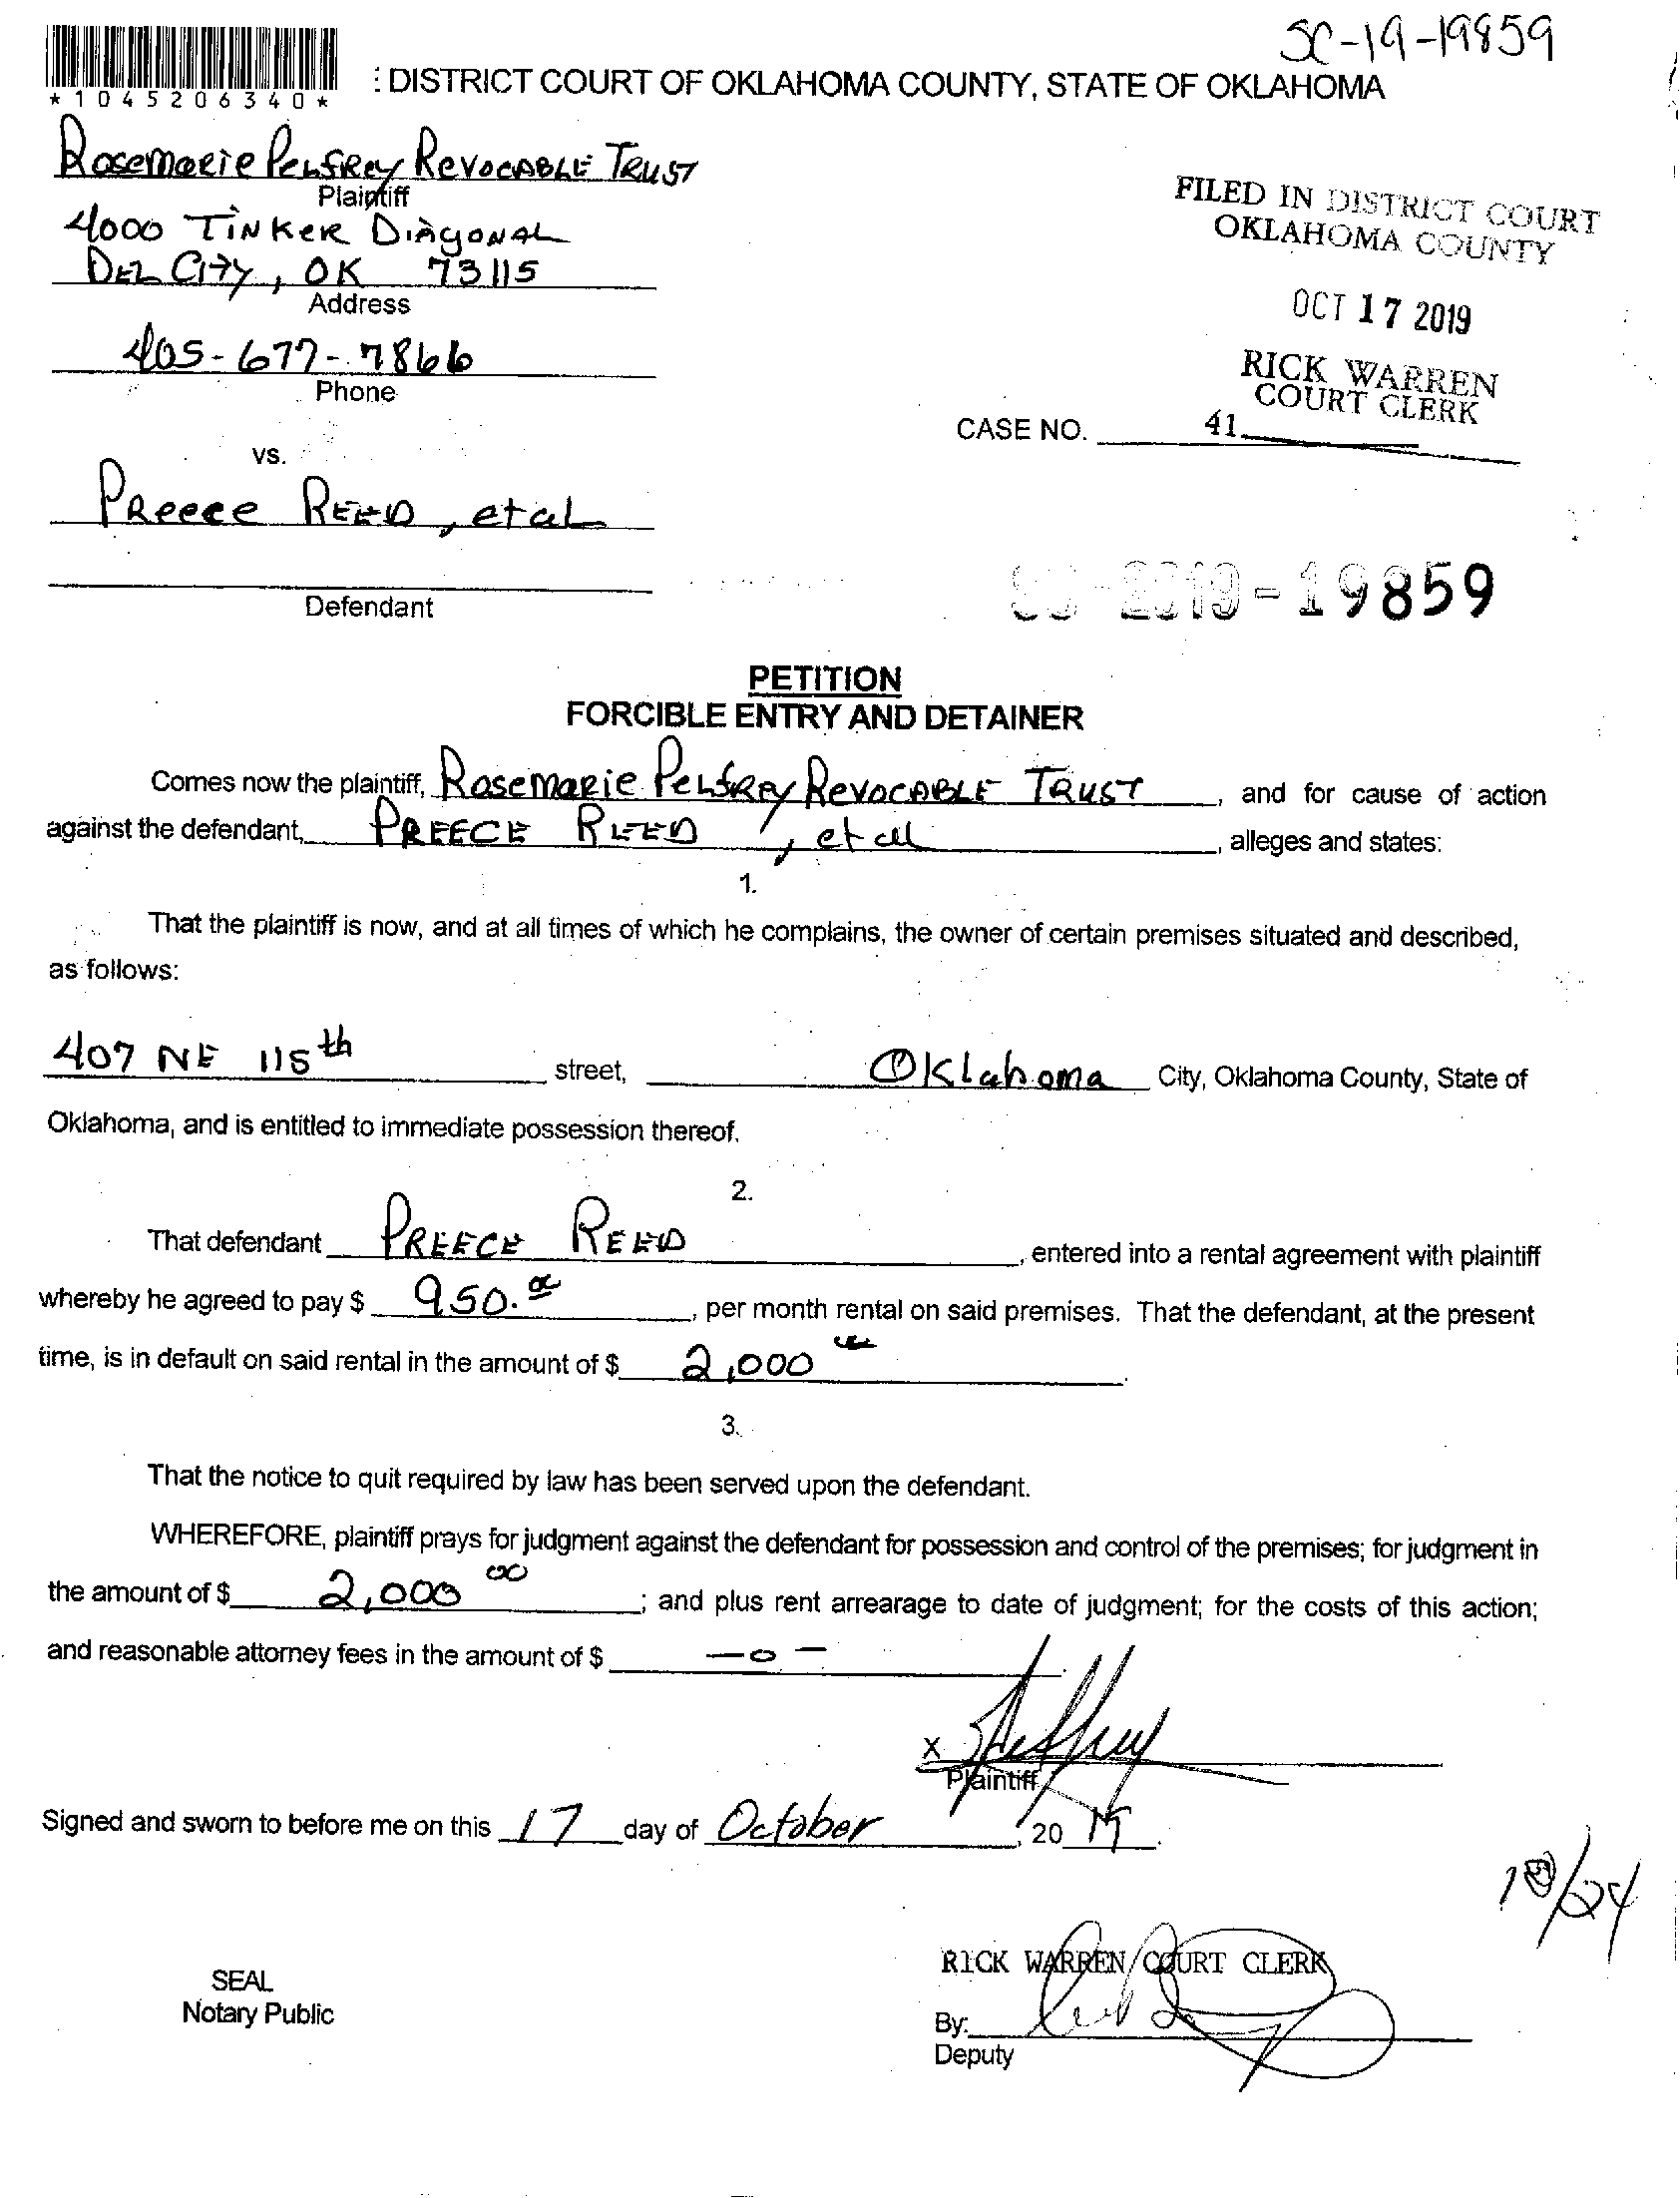 SC-19-19859
*1045206340*
: DISTRICT COURT OF OKLAHOMA COUNTY, STATE OF OKLAHOMA
Rosemarie Pelfrey Revocable Trust
Plaintiff
4000 Tinker Diagonal
Del City, OK 73115
Address
405-677-7866
Phone
FILED IN DISTRICT COURT
OKLAHOMA COUNTY
OCT 17 2019
RICK WARREN
COURT CLERK
CASE NO. 41
vs.
Preece Reed, et al
Defendant
SC-2019-19859
PETITION
FORCIBLE ENTRY AND DETAINER
Comes now the plaintiff, Rosemarie Pelfrey Revocable Trust, and for cause of action
against the defendant, Preece Reed, et al, alleges and states:
1.
That the plaintiff is now, and at all times of which he complains, the owner of certain premises situated and described,
as follows:
407 NE 115th street, Oklahoma City, Oklahoma County, State of
Oklahoma, and is entitled to immediate possession thereof.
2.
That defendant Preece Reed, entered into a rental agreement with plaintiff
whereby he agreed to pay $ 950.00, per month rental on said premises. That the defendant, at the present
time, is in default on said rental in the amount of $ 2,000 00.
3.
That the notice to quit required by law has been served upon the defendant.
WHEREFORE, plaintiff prays for judgment against the defendant for possession and control of the premises; for judgment in
the amount of $ 2,000 00; and plus rent arrearage to date of judgment; for the costs of this action;
and reasonable attorney fees in the amount of $ -0-
X
Plaintiff
Signed and sworn to before me on this 17 day of October, 2019.
10/24
SEAL
Notary Public
RICK WARREN, COURT CLERK
By:
Deputy